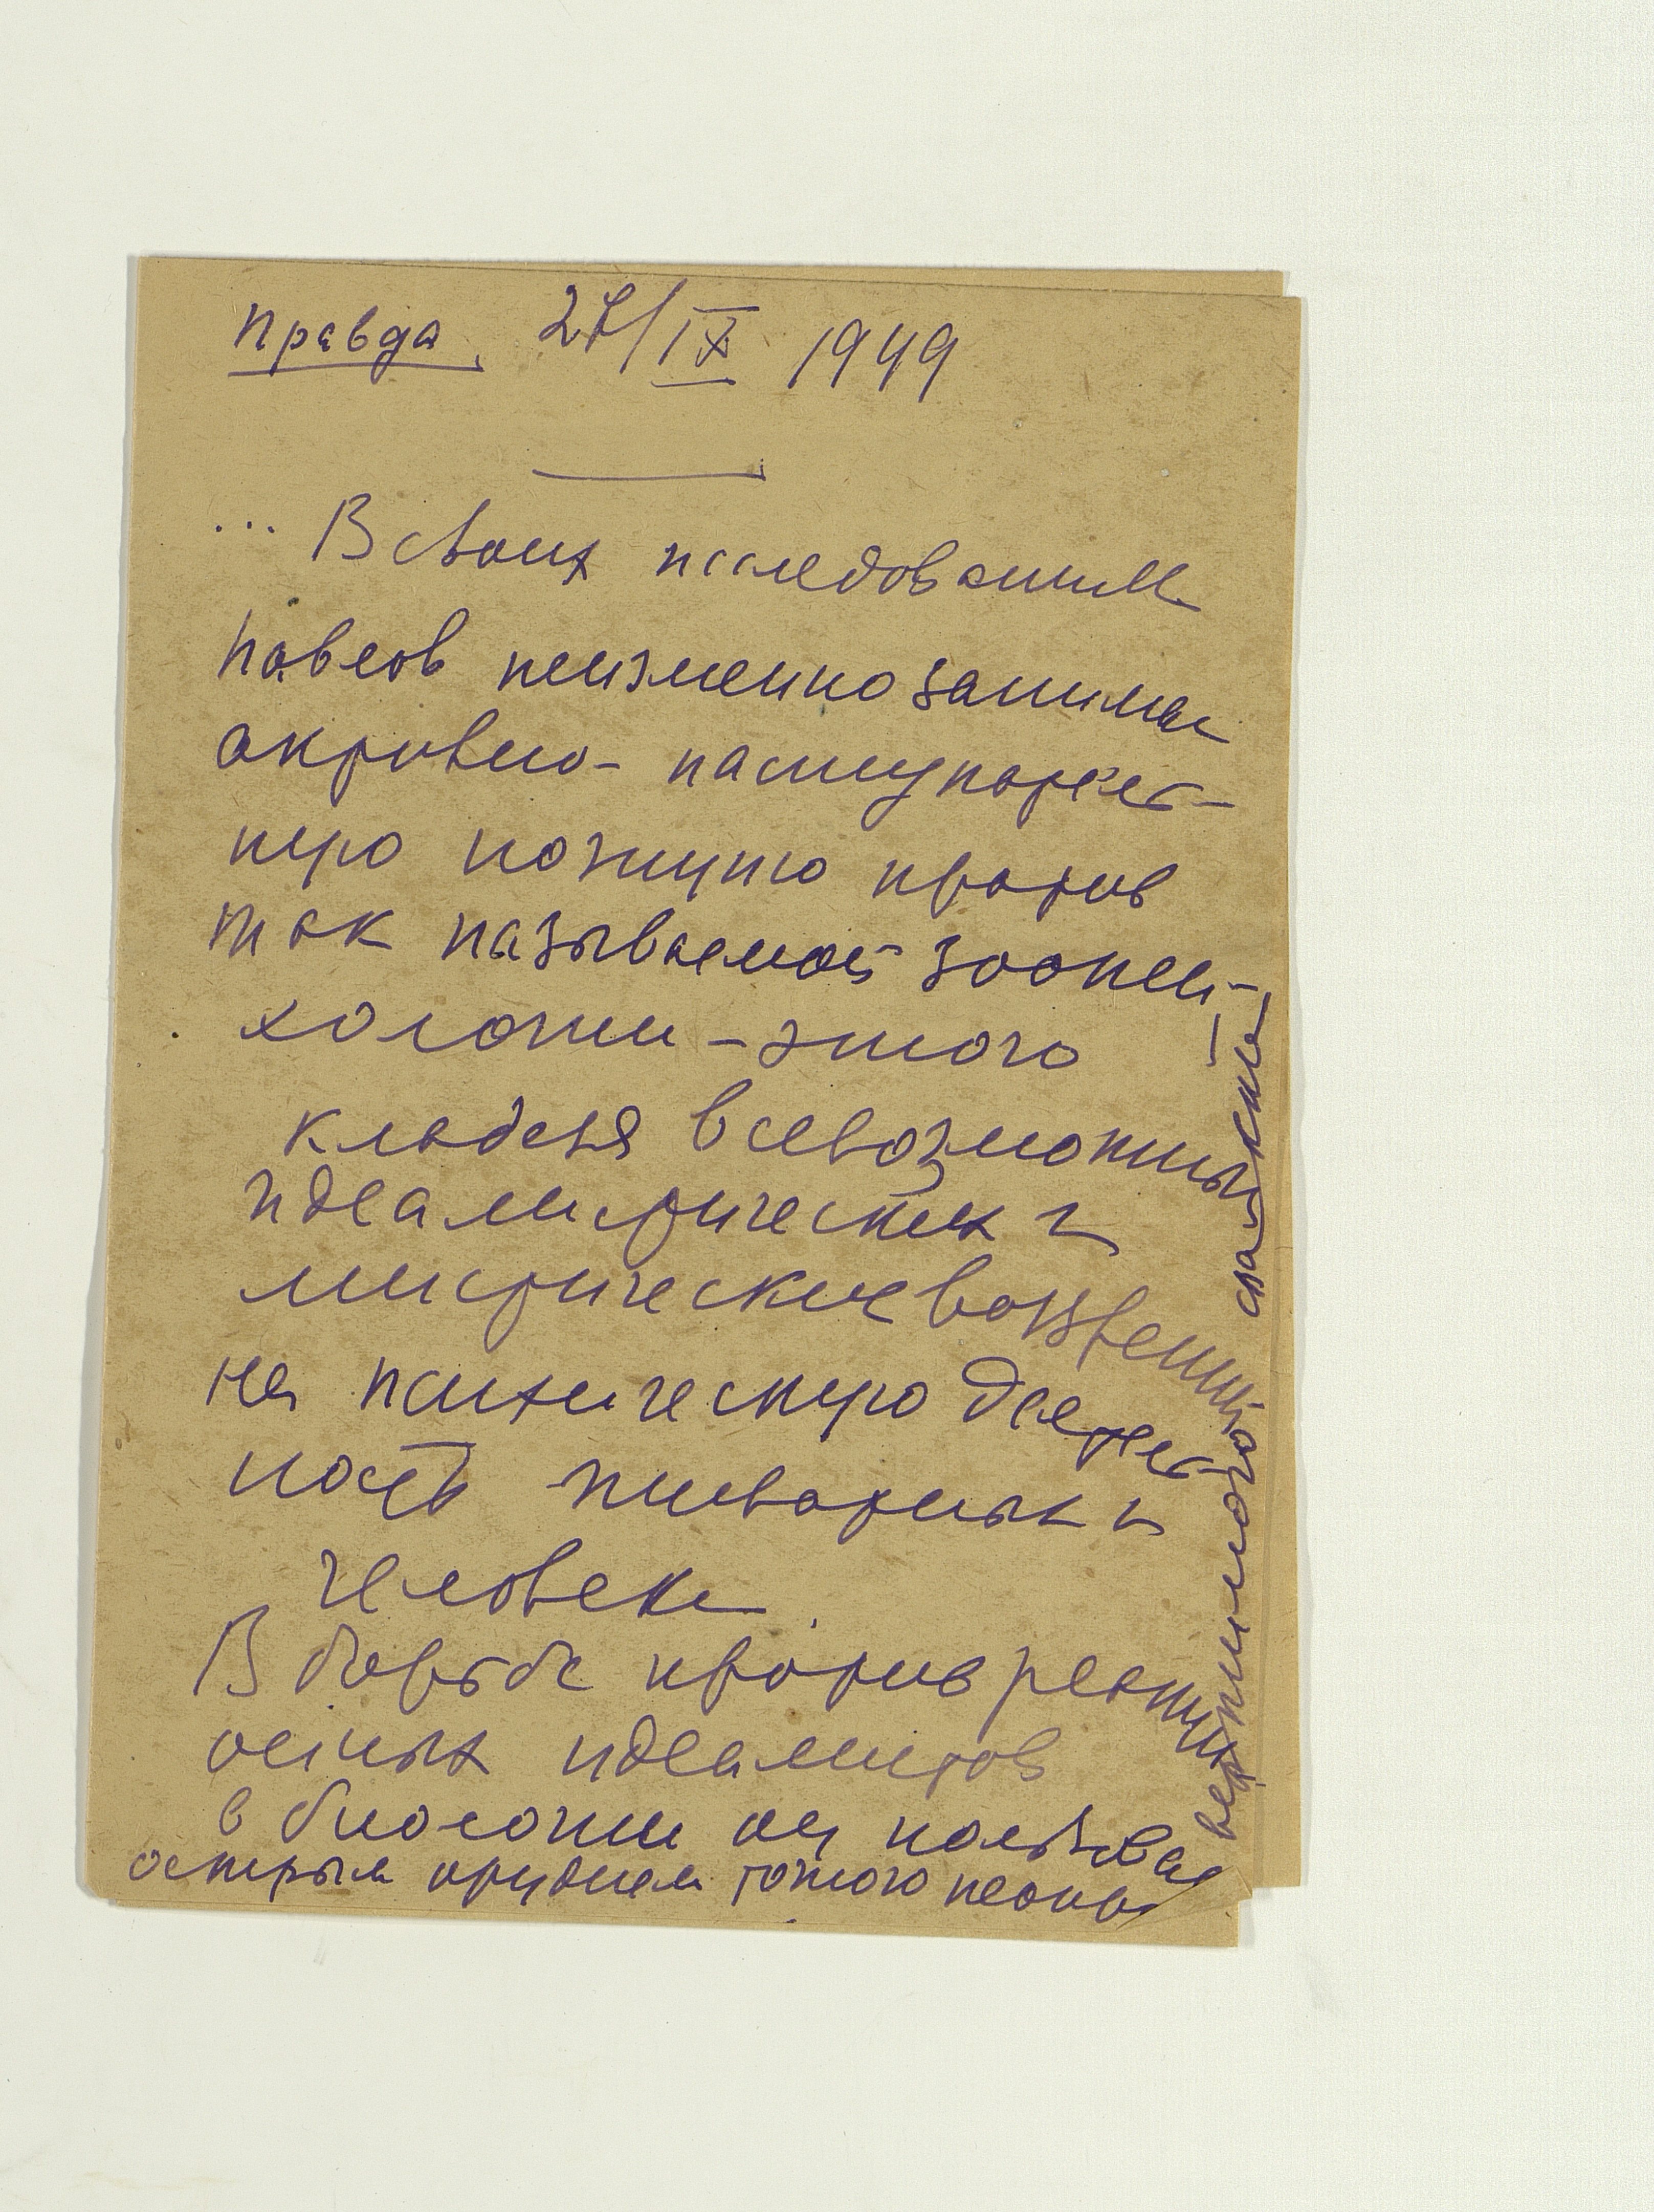 Правда, 27/IX 1949
... В своих исследованиях
Павлов неизменно занимал
активно-наступатель-
ную позицию против
так называемой зоопси-
хологии – этого
кладезя всевозможных
идеалистических и
мистических воззрений
на психическую деятель-
ность животных и
человека.
В борьбе против реакци-
онных идеалистов
в биологии он пользовался
острым орудием точного неопро-
вержимого